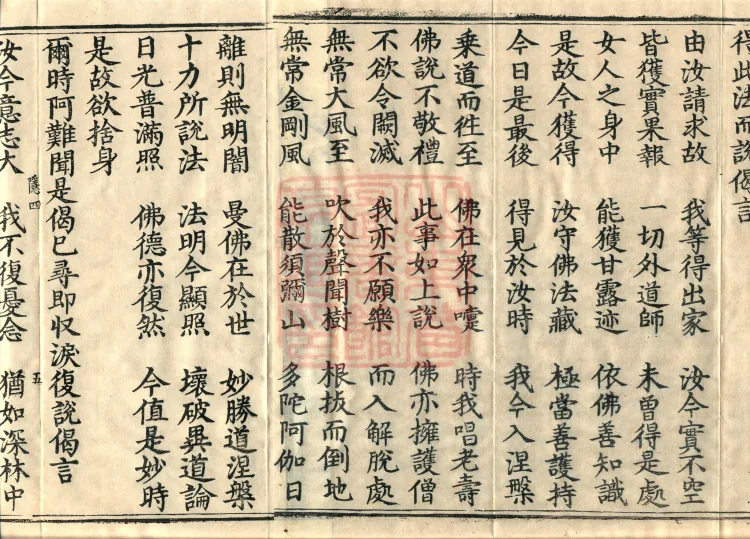 得此法而說偈言
由汝請求故 我等得出家 汝今實不空
皆獲實果報 一切外道師 未曾得是處
女人之身中 能獲甘露迹 依佛善知識
是故今獲得 汝守佛法藏 極當善護持
今日是最後 得見於汝時 我今入涅槃
乘道而徃至 佛在衆中嚏 時我唱老壽
佛說不敬禮 此事如上說 佛亦擁護僧
不欲令闕減 我亦不願樂 而入解脫處
無常大風至 吹於聲聞樹 根拔而倒地
無常金剛風 能散須彌山 多陀阿伽日
離則無明闇 曼佛在於世 妙勝道涅槃
十力所說法 法明今顯照 壞破異道論
日光普滿照 佛德亦復然 今值是妙時
是故欲捨身
爾時阿難聞是偈已尋即収淚復說偈言
隱四 五
汝今意志大 我不復憂念 猶如深林中